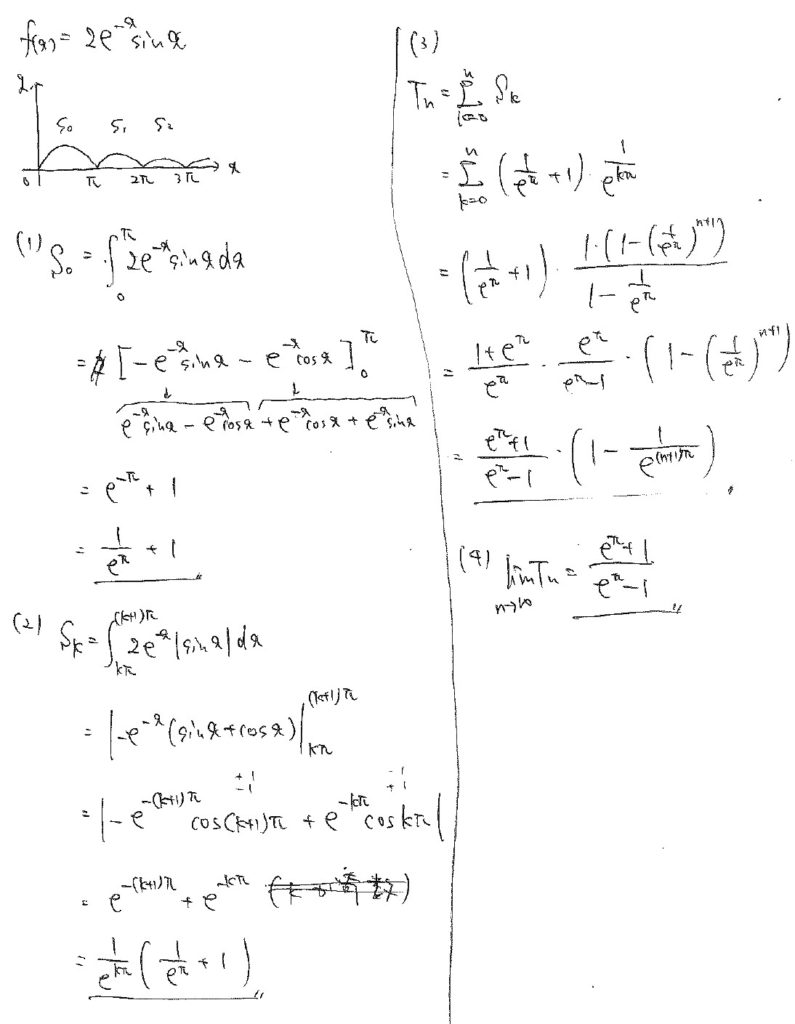 f(x) = 2e^{-x} sin x
y
S_0 S_1 S_2
0 π 2π 3π x
(1) S_0 = ∫_0^π 2e^{-x} sin x dx
= [-e^{-x} sin x - e^{-x} cos x]_0^π
↓ ↓
e^{-x} sin x - e^{-x} cos x + e^{-x} cos x + e^{-x} sin x
= e^{-π} + 1
= 1/e^π + 1
(2) S_k = ∫_{kπ}^{(k+1)π} 2e^{-x} |sin x| dx
= |-e^{-x} (sin x + cos x)|_{kπ}^{(k+1)π}
+1 -1
-1 +1
= |-e^{-(k+1)π} cos(k+1)π + e^{-kπ} cos kπ|
= e^{-(k+1)π} + e^{-kπ}
= 1/e^{kπ} (1/e^π + 1)
(3)
T_n = Σ_{k=0}^n S_k
= Σ_{k=0}^n (1/e^π + 1) · 1/e^{kπ}
= (1/e^π + 1) · 1·(1-(1/e^π)^{n+1}) / (1 - 1/e^π)
= (1+e^π)/e^π · e^π/(e^π-1) · (1-(1/e^π)^{n+1})
= (e^π+1)/(e^π-1) · (1 - 1/e^{(n+1)π})
(4) lim_{n→∞} T_n = (e^π+1)/(e^π-1)